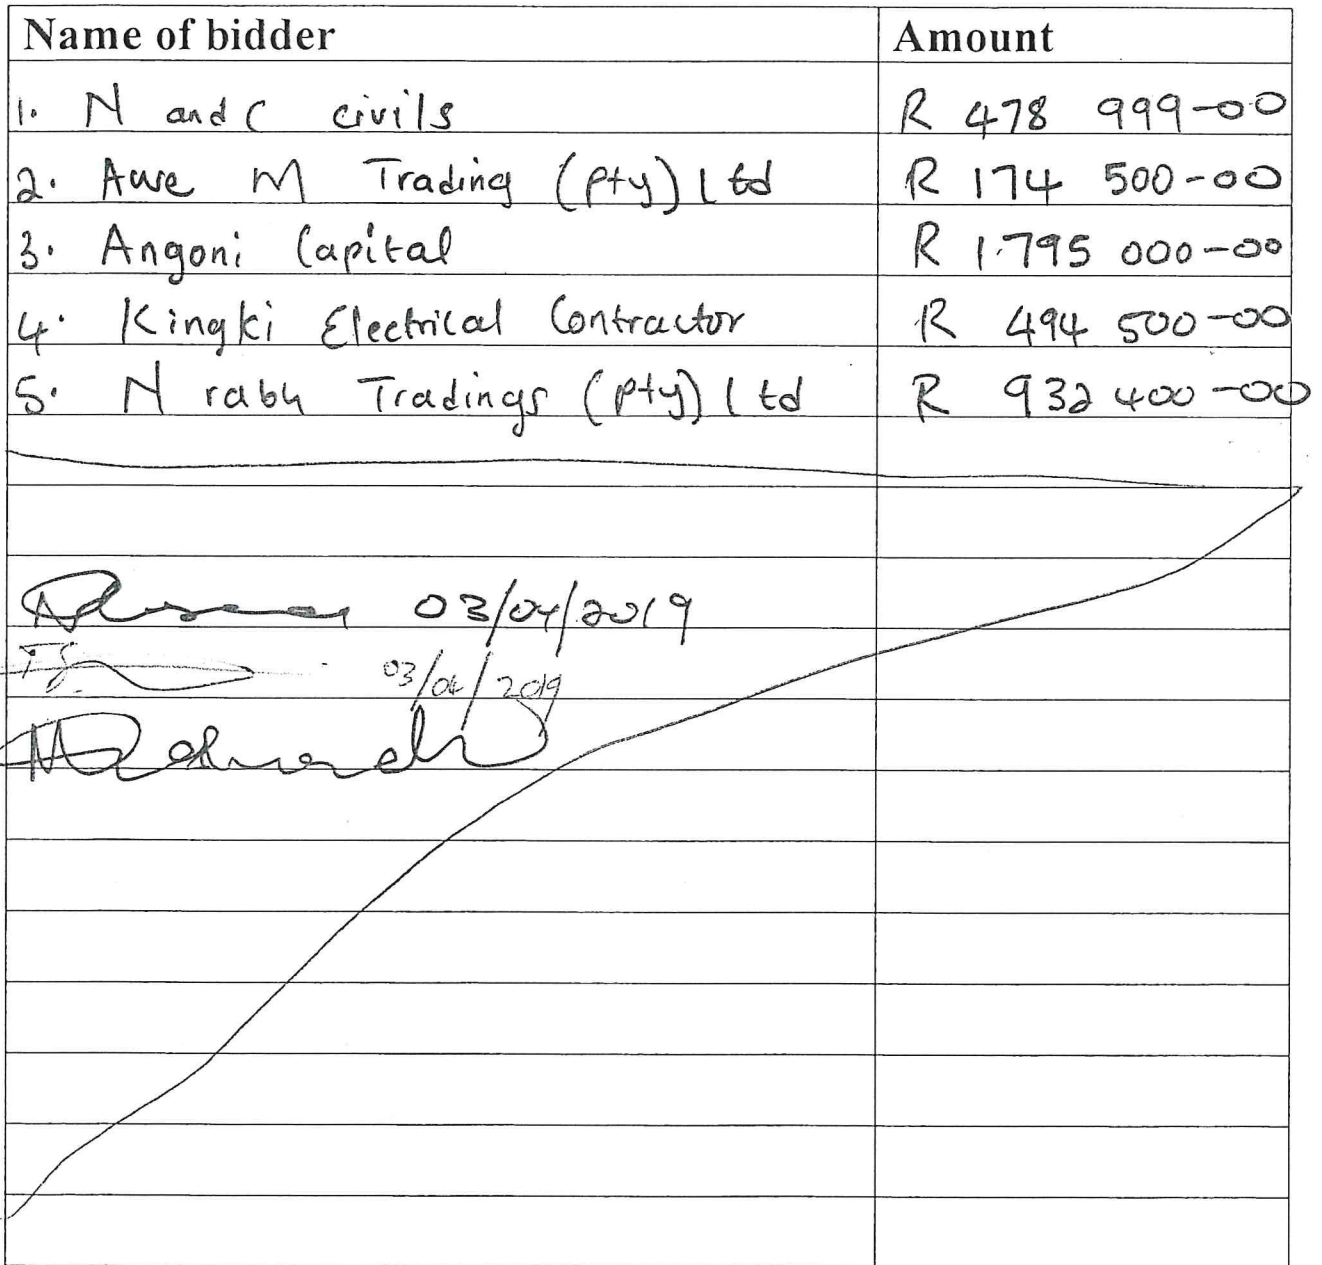 Name of bidder Amount
1. N and C civils R 478 999-00
2. Awe M Trading (pty) Ltd R 174 500-00
3. Angoni Capital R 1.795 000-00
4. Kingki Electrical Contractor R 494 500-00
5. N rabu Tradings (pty) Ltd R 932 400-00
03/04/2019
03/04/2019